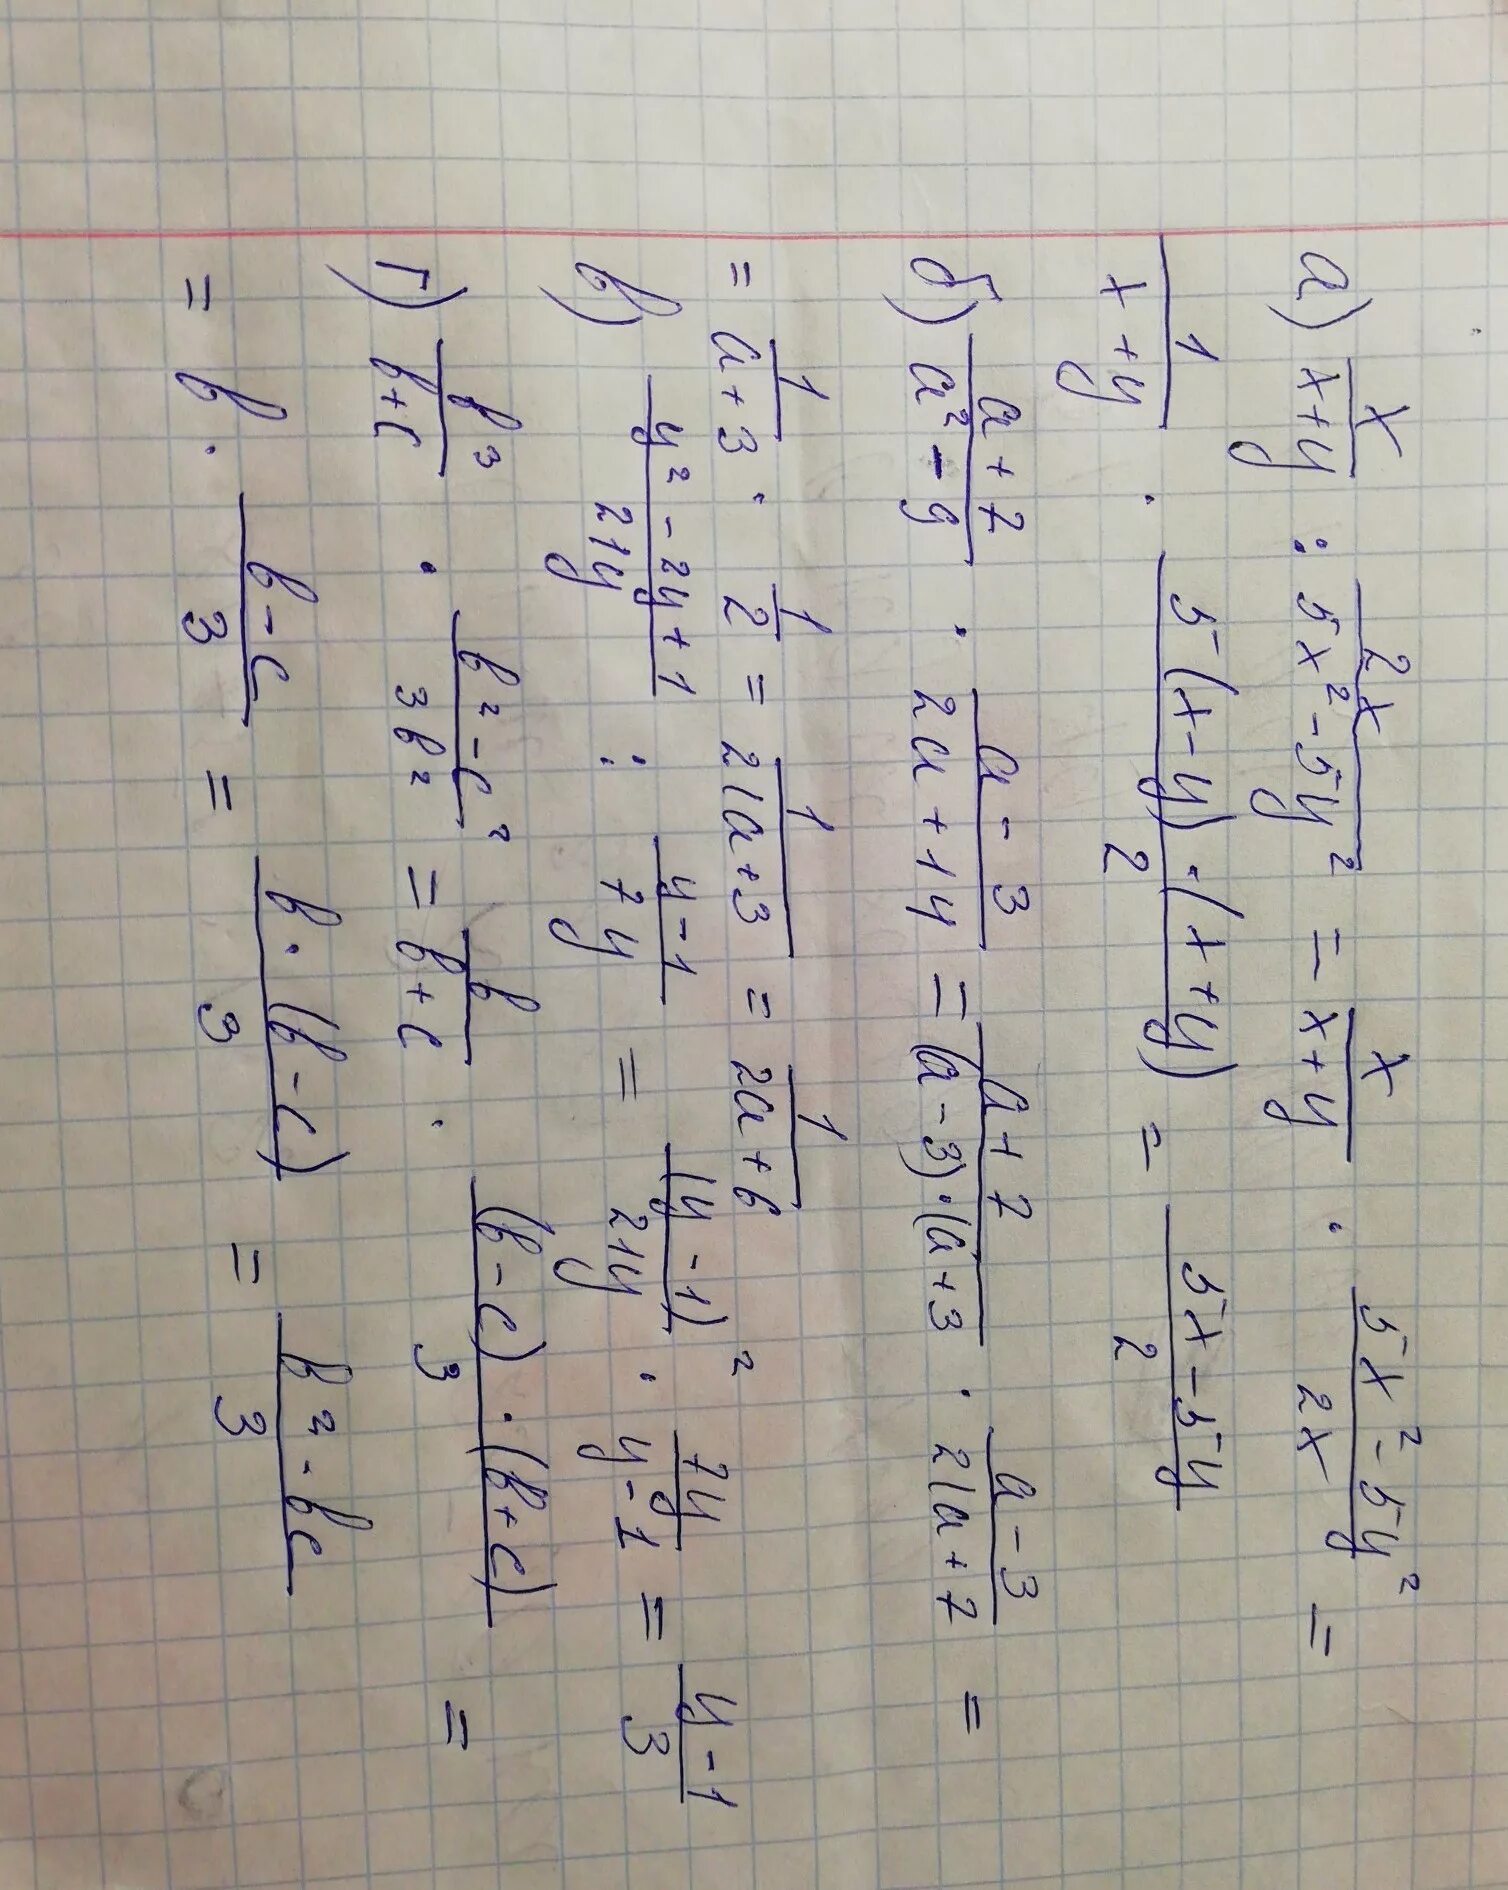 а) x/(x+y) : 2x/(5x²-5y²) = x/(x+y) · (5x²-5y²)/2x =
1/(x+y) · 5(x-y)·(x+y)/2 = (5x-5y)/2
б) (a+7)/(a²-9) · (a-3)/(2a+14) = (a+7)/((a-3)·(a+3) · (a-3)/(2(a+7) =
= 1/(a+3) · 1/2 = 1/(2(a+3) = 1/(2a+6)
в) (y²-2y+1)/21y : (y-1)/7y = (y-1)²/21y · 7y/(y-1) = (y-1)/3
г) b³/(b+c) · (b²-c²)/3b² = b/(b+c) · (b-c)·(b+c)/3 =
= b · (b-c)/3 = b·(b-c)/3 = (b²-bc)/3